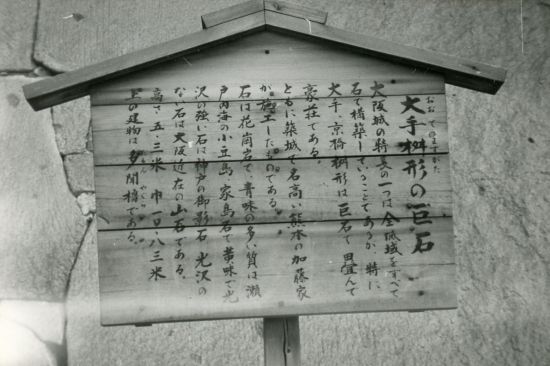 大手桝形の巨石
おおてのますがた
大阪城の特長の一つは全城域をすべて
石で構築していることであるが 特に
大手、京橋桝形は巨石で畳んで
豪荘である。
ともに築城で名高い熊本の加藤家
が施工したものである。
石は花崗岩で、青味の多い質は瀬
戸内海の小豆島、家島石で黄味で光
沢の強い石は神戸の御影石 光沢の
ない石は大阪近在の山石である。
高さ 五・三米 巾一〇・八三米
上の建物は多聞櫓である。